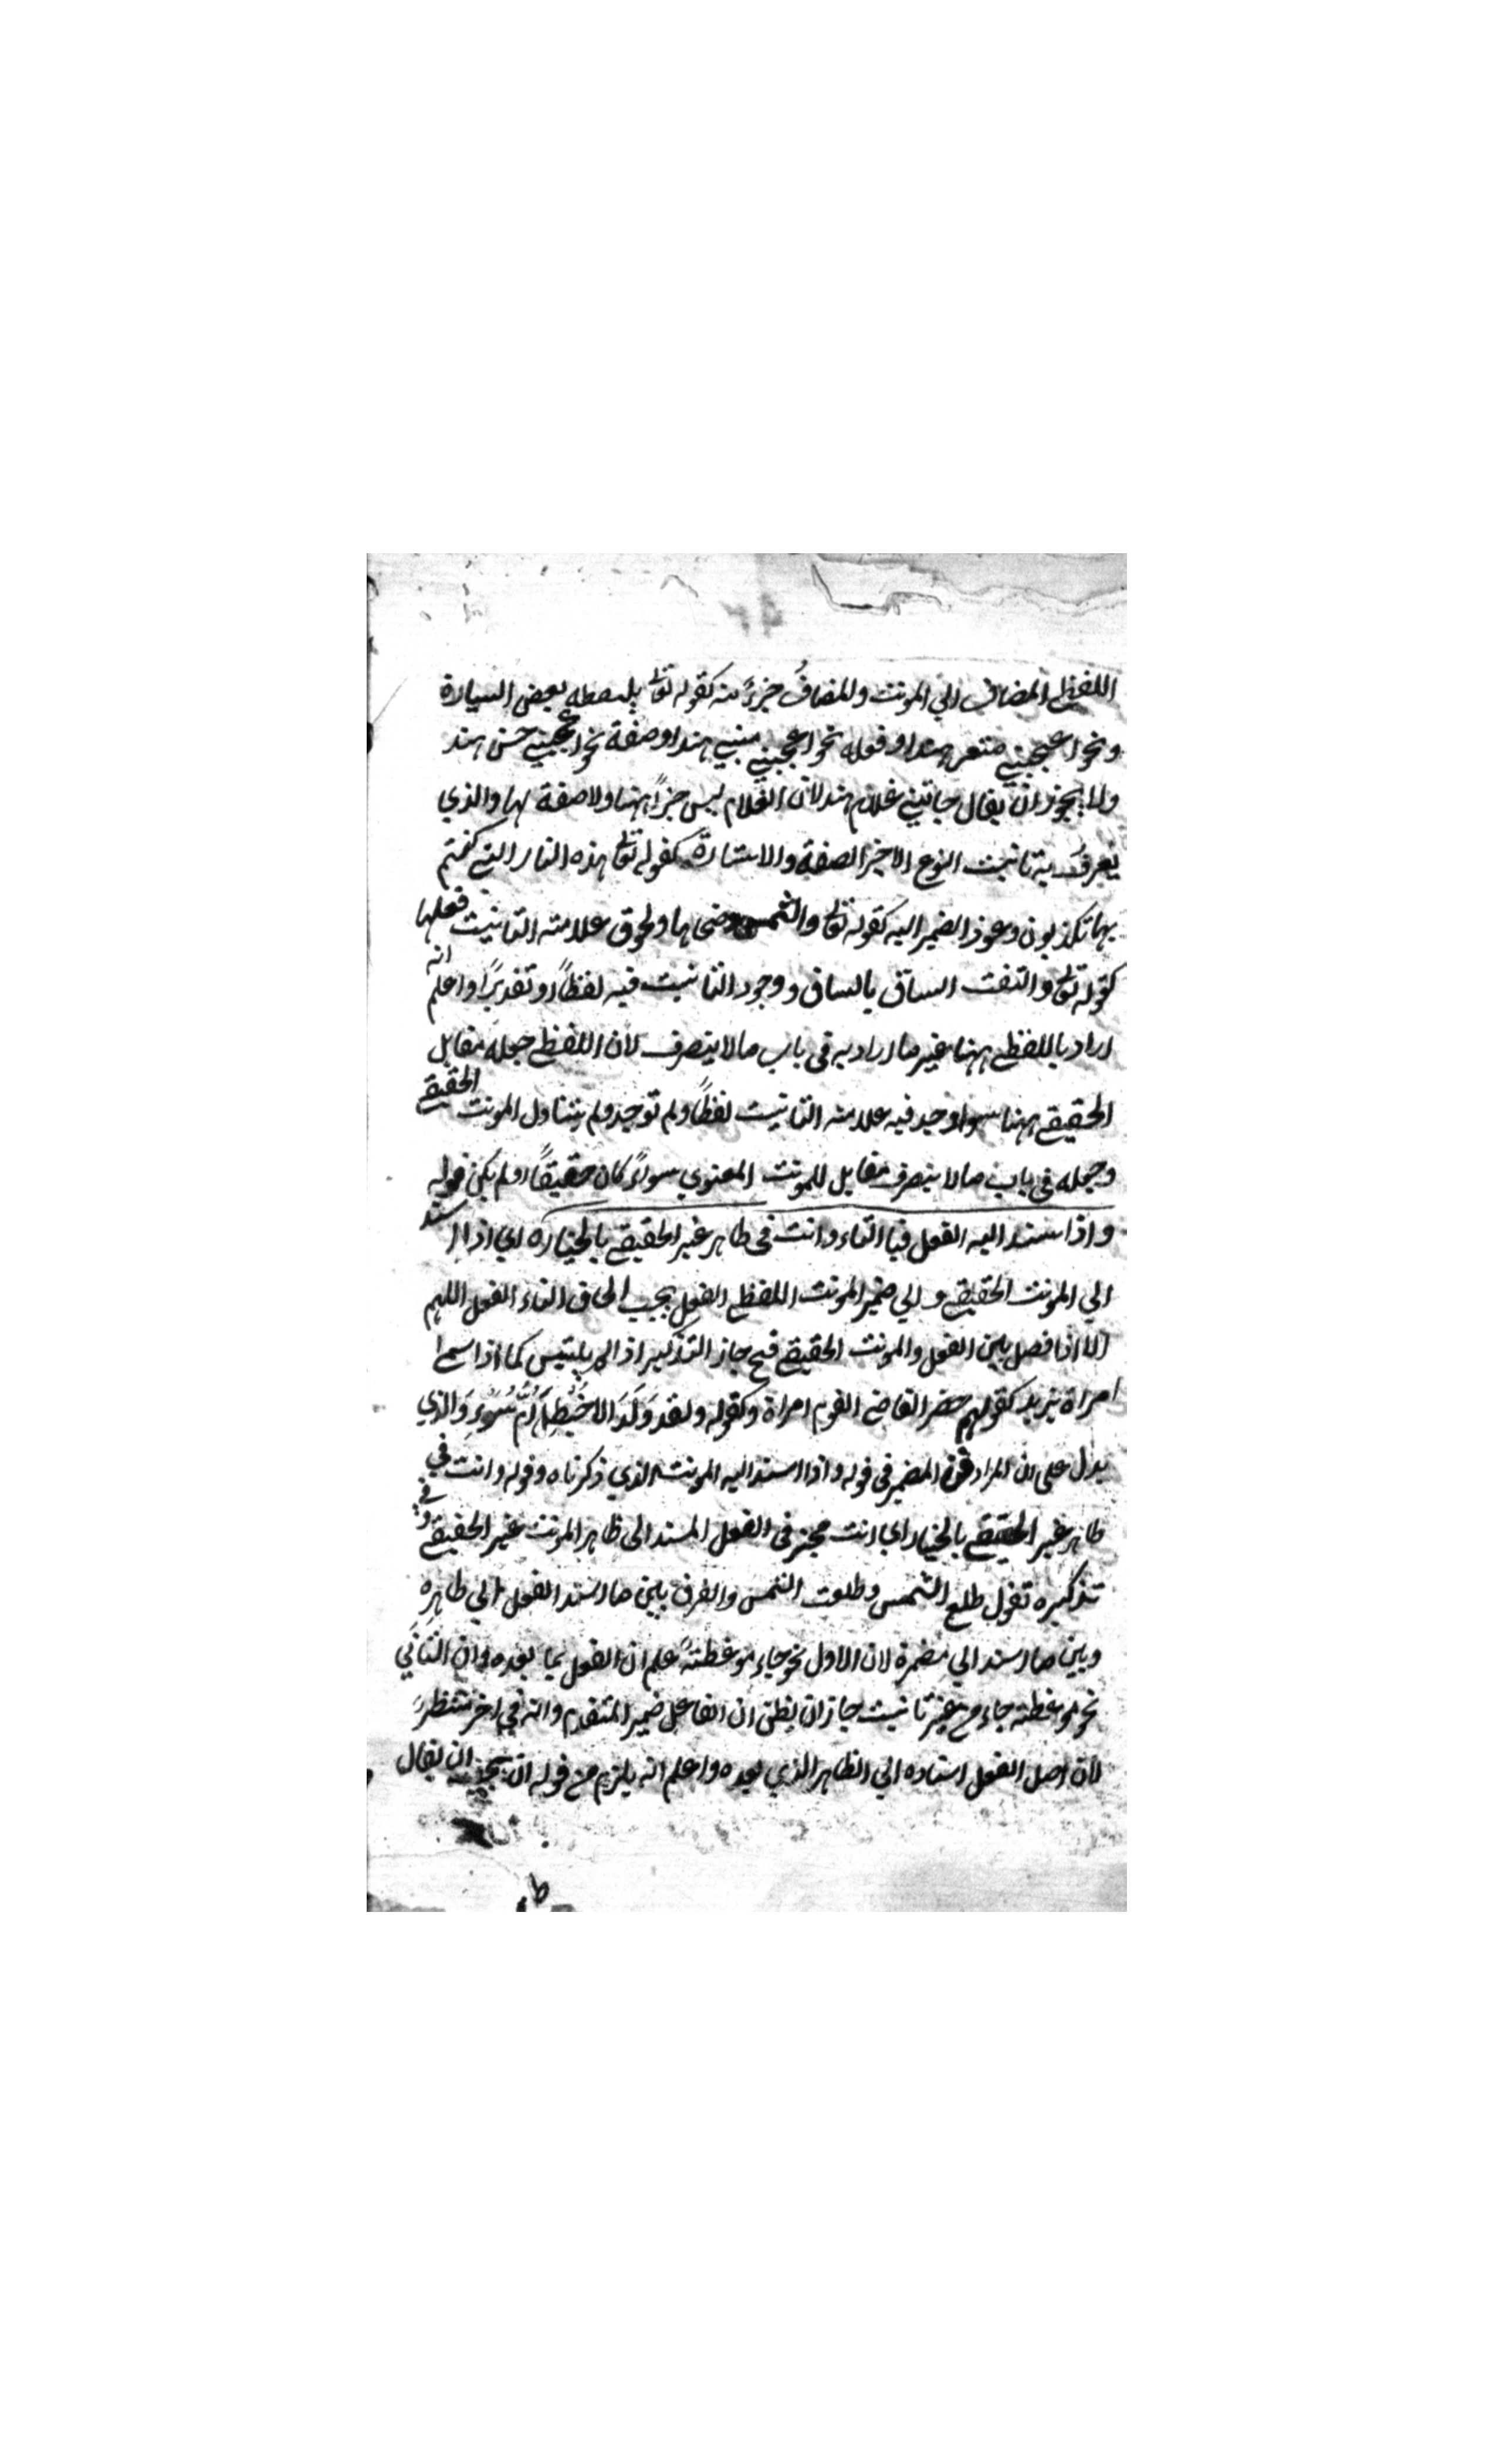 اللفظي المضاف الي المونث والمضافُ جزءً منه كقوله تعالى يلتقطه بعض السيارة
ونحو اعجبني شعر هند او فعله نحو اعجبني مشي هند او صفة نحو اعجبني حسن هند
ولا يجوز ان يقال جاتني غلام هند لان الغلام ليس جزاً لهند ولا صفة لها والذي
يعرف به تانيث النوع الاخير الصفة والاشارة كقوله تعالى هذه النار التي كنتم
بها تكذبون وعود الضمير اليه كقوله تعالى والشمس وضحاها ولحوق علامته التانيث فعلها
كقوله تعالى والتفت الساق بالساق ووجود التانيث فيه لفظاً او تقديرًا واعلم انه
اراد باللفظي ههنا غير ما اراد به في باب ما لا ينصرف لان اللفظي جعله مقابل
الحقيقي ههنا سوا وجد فيه علامته التانيث لفظاً ولم توجد ولم يتناول المونث الحقيقي
وجعله في باب ما لا ينصرف مقابل للمونث المعنوي سواءً كان حقيقياً او لم يكن قوله
واذا اسند اليه الفعل فبا التاء وانت في ظاهر غير الحقيقي بالخيار اي اذا اسند
الي المونث الحقيقي والي ضمير المونث اللفظي الفعل يجب الحاق التاء الفعل اللهم
الا اذا فصل بين الفعل والمونث الحقيقي فح جاز التذكير اذا لم يلتبس كما اذا سمع
امراة يزيد كقولهم حضر القاضي اليوم امراة وكقوله ولقد وَلَدَ الاخَيْطِلَ اُمُّ سُوْءٍ والذي
يدل على ان المراد المضمر في قوله واذا اسند اليه المونث الذي ذكرناه وقوله وانت في
ظاهر غير الحقيقي بالخيار اي انت مخير في الفعل المسند الى ظاهر المونث غير الحقيقي في
تذكيره تقول طلع الشمس وطلعت الشمس والفرق بين ما اسند الفعل الي ظاهره
وبين ما اسند الي مضمره لان الاول نحو جاء موعظتةً علم ان الفعل لما بعده وان الثاني
نحو موعظته جاء من غير تانيث جاز ان يظن ان الفاعل ضمير المتقدم وانه في اخر تنتظر
لان اصل الفعل اسناده الي الظاهر الذي بعده واعلم انه يلزم من قوله ان يجوز ان يقال